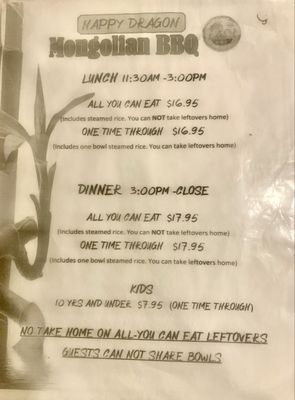 HAPPY DRAGON
Mongolian BBQ
LUNCH 11:30AM -3:00PM
ALL YOU CAN EAT $16.95
(Includes steamed rice. You can NOT take leftovers home)
ONE TIME THROUGH $16.95
(Includes one bowl steamed rice. You can take leftovers home)
DINNER 3:00PM -CLOSE
ALL YOU CAN EAT $17.95
(Includes steamed rice. You can NOT take leftovers home)
ONE TIME THROUGH $17.95
(Includes one bowl steamed rice. You can take leftovers home)
KIDS
10 YRS AND UNDER $7.95 (ONE TIME THROUGH)
NO TAKE HOME ON ALL-YOU CAN EAT LEFTOVERS
GUESTS CAN NOT SHARE BOWLS